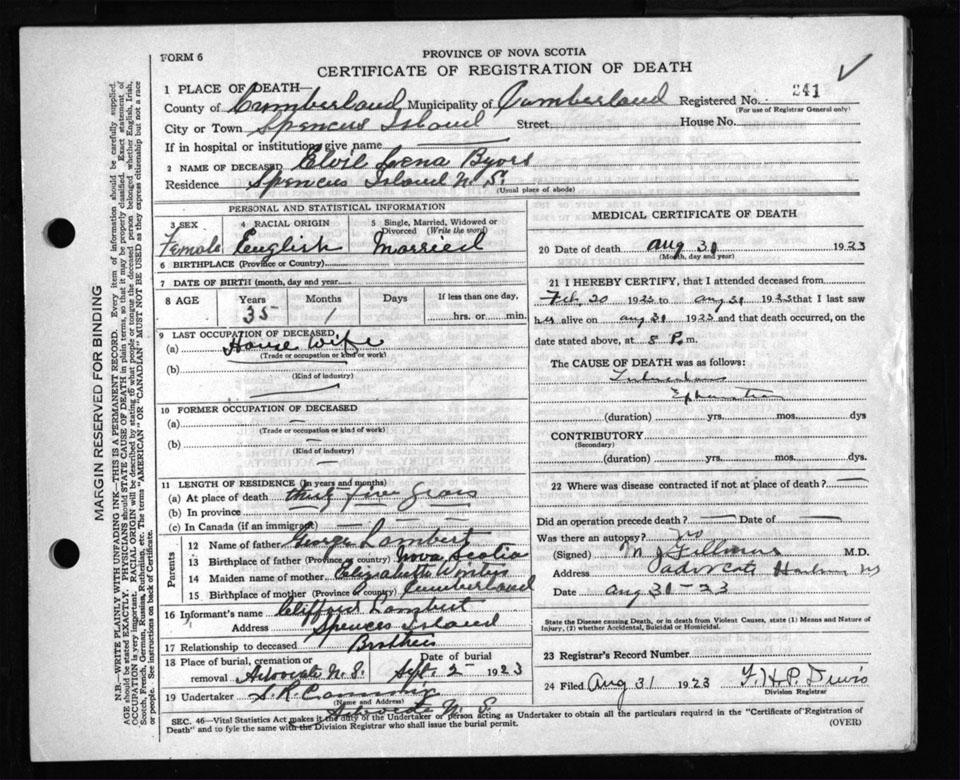 FORM 6
PROVINCE OF NOVA SCOTIA
CERTIFICATE OF REGISTRATION OF DEATH
1 PLACE OF DEATH—
County of Cumberland Municipality of Cumberland Registered No. 241
(For use of Registrar General only)
City or Town Spencers Island Street House No.
If in hospital or institution give name
2 NAME OF DECEASED Lena Byers
Residence Spencers Island N. S.
(Usual place of abode)
PERSONAL AND STATISTICAL INFORMATION
3 SEX 4 RACIAL ORIGIN 5 Single, Married, Widowed or Divorced (Write the word)
Female English Married
6 BIRTHPLACE (Province or Country)
7 DATE OF BIRTH (month, day and year)
8 AGE Years Months Days If less than one day,
35 1 hrs. or min.
9 LAST OCCUPATION OF DECEASED
(a) House Wife
(Trade or occupation or kind or work)
(b)
(Kind of industry)
10 FORMER OCCUPATION OF DECEASED
(a) —
(Trade or occupation or kind of work)
(b) —
(Kind of industry)
—
11 LENGTH OF RESIDENCE (In years and months)
(a) At place of death thirty five years
(b) In province — — —
(c) In Canada (if an immigrant) — — —
Parents
12 Name of father George Lambert
13 Birthplace of father (Province or country) Nova Scotia
14 Maiden name of mother Elizabeth
15 Birthplace of mother (Province or country) Cumberland
16 Informant's name Clifford Lambert
Address Spencers Island
17 Relationship to deceased Brother
18 Place of burial, cremation or removal Advocate N. S. Date of burial Sept. 2 - 1923
19 Undertaker S. K.
(Name and Address)
Advocate N. S.
MEDICAL CERTIFICATE OF DEATH
20 Date of death Aug 31 1923
(Month, day and year)
21 I HEREBY CERTIFY, that I attended deceased from
Feb. 20 1923 to Aug 31 1923 that I last saw
her alive on Aug 31 1923 and that death occurred, on
date stated above, at 8 P. m.
The CAUSE OF DEATH was as follows:
(duration) yrs. mos. dys
CONTRIBUTORY
(Secondary)
(duration) yrs. mos. dys
22 Where was disease contracted if not at place of death? —
Did an operation precede death? — Date of —
Was there an autopsy? no
(Signed) M. J. Fillmore M.D.
Address Advocate Harbour NS
Date Aug 31-23
State the Disease causing Death, or in death from Violent Causes, state (1) Means and Nature of
Injury, (2) whether Accidental, Suicidal or Homicidal.
23 Registrar's Record Number
24 Filed Aug 31 1923 F. H. P.
Division Registrar
SEC. 46—Vital Statistics Act makes it the duty of the Undertaker or person acting as Undertaker to obtain all the particulars required in the "Certificate of Registration of
Death" and to fyle the same with the Division Registrar who shall issue the burial permit. (OVER)
MARGIN RESERVED FOR BINDING
N.B.—WRITE PLAINLY WITH UNFADING INK—THIS IS A PERMANENT RECORD. Every item of information should be carefully supplied.
AGE should be stated EXACTLY. PHYSICIANS should STATE CAUSE OF DEATH in plain terms, so that it may be properly classified. Exact statement of
OCCUPATION is very important. RACIAL ORIGIN will be described by stating to what people or tongue the deceased person belonged whether English, Irish,
Scotch, French, German, Russian, Ruthenian, etc. The terms "AMERICAN" or "CANADIAN" MUST NOT BE USED as they express citizenship but not a race
or people. See instructions on back of Certificate.